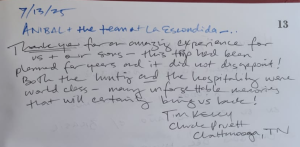 7/13/25
13
ANIBAL + the team at La Escondida...
Thank you for an amazing experience for
us + our sons - this trip had been
planned for years and it did not disappoint!
Both the hunting and the hospitality were
world class - many unforgettable memories
that will certainly bring us back!
Tim Kelly
Chuck Pruett
Chattanooga, TN